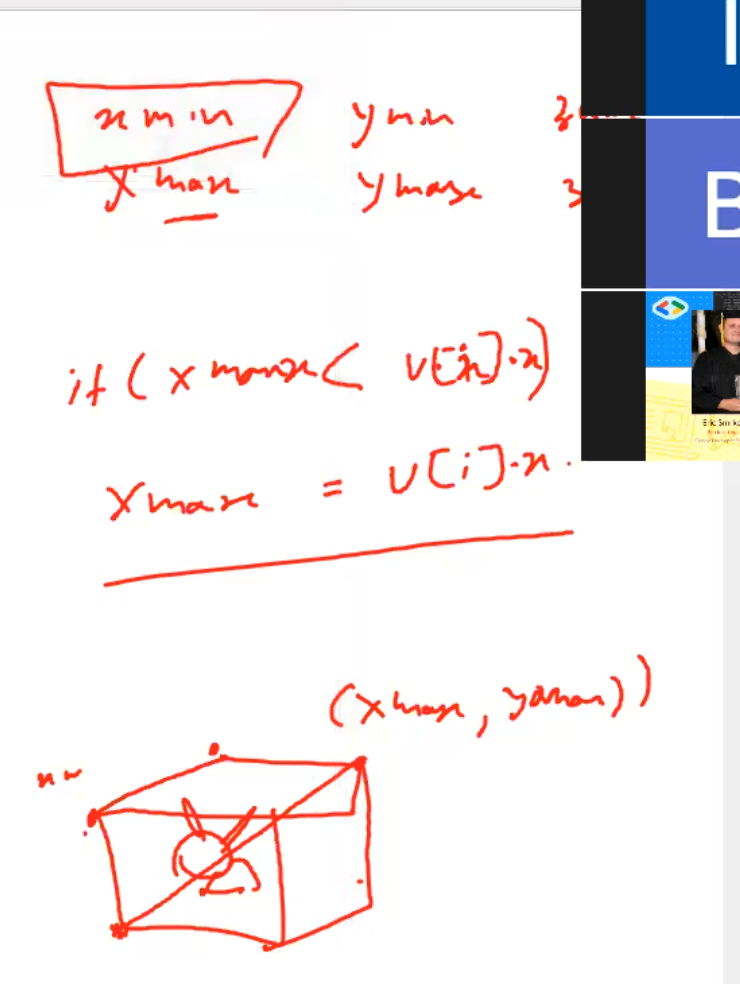 xmin ymin
xmax ymax
if ( xmax < v[i].x)
xmax = v[i].x.
(xmax, ymax))
B
Eric